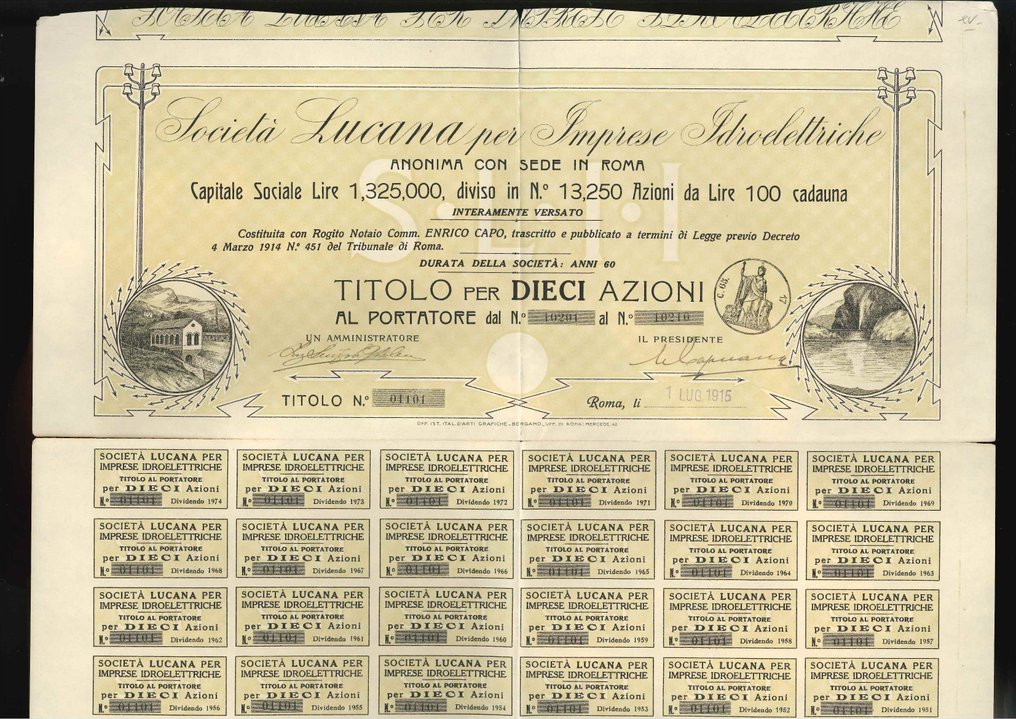 Società Lucana per Imprese Idroelettriche
ANONIMA CON SEDE IN ROMA
Capitale Sociale Lire 1,325,000, diviso in N.º 13,250 Azioni da Lire 100 cadauna
INTERAMENTE VERSATO
S·L·I·I
Costituita con Rogito Notaio Comm. ENRICO CAPO, trascritto e pubblicato a termini di Legge previo Decreto
4 Marzo 1914 N.º 451 del Tribunale di Roma.
DURATA DELLA SOCIETÀ: ANNI 60
TITOLO PER DIECI AZIONI
AL PORTATORE dal N.º 10201 al N.º 10210
UN AMMINISTRATORE
IL PRESIDENTE
TITOLO N.º 01101
Roma, lì 1 LUG 1915
OFF. IST. ITAL. D'ARTI GRAFICHE - BERGAMO
SOCIETÀ LUCANA PER
IMPRESE IDROELETTRICHE
TITOLO AL PORTATORE
per DIECI Azioni
N.º 01101 Dividendo 1974
SOCIETÀ LUCANA PER
IMPRESE IDROELETTRICHE
TITOLO AL PORTATORE
per DIECI Azioni
N.º 01101 Dividendo 1973
SOCIETÀ LUCANA PER
IMPRESE IDROELETTRICHE
TITOLO AL PORTATORE
per DIECI Azioni
N.º 01101 Dividendo 1972
SOCIETÀ LUCANA PER
IMPRESE IDROELETTRICHE
TITOLO AL PORTATORE
per DIECI Azioni
N.º 01101 Dividendo 1971
SOCIETÀ LUCANA PER
IMPRESE IDROELETTRICHE
TITOLO AL PORTATORE
per DIECI Azioni
N.º 01101 Dividendo 1970
SOCIETÀ LUCANA PER
IMPRESE IDROELETTRICHE
TITOLO AL PORTATORE
per DIECI Azioni
N.º 01101 Dividendo 1969
SOCIETÀ LUCANA PER
IMPRESE IDROELETTRICHE
TITOLO AL PORTATORE
per DIECI Azioni
N.º 01101 Dividendo 1968
SOCIETÀ LUCANA PER
IMPRESE IDROELETTRICHE
TITOLO AL PORTATORE
per DIECI Azioni
N.º 01101 Dividendo 1967
SOCIETÀ LUCANA PER
IMPRESE IDROELETTRICHE
TITOLO AL PORTATORE
per DIECI Azioni
N.º 01101 Dividendo 1966
SOCIETÀ LUCANA PER
IMPRESE IDROELETTRICHE
TITOLO AL PORTATORE
per DIECI Azioni
N.º 01101 Dividendo 1965
SOCIETÀ LUCANA PER
IMPRESE IDROELETTRICHE
TITOLO AL PORTATORE
per DIECI Azioni
N.º 01101 Dividendo 1964
SOCIETÀ LUCANA PER
IMPRESE IDROELETTRICHE
TITOLO AL PORTATORE
per DIECI Azioni
N.º 01101 Dividendo 1963
SOCIETÀ LUCANA PER
IMPRESE IDROELETTRICHE
TITOLO AL PORTATORE
per DIECI Azioni
N.º 01101 Dividendo 1962
SOCIETÀ LUCANA PER
IMPRESE IDROELETTRICHE
TITOLO AL PORTATORE
per DIECI Azioni
N.º 01101 Dividendo 1961
SOCIETÀ LUCANA PER
IMPRESE IDROELETTRICHE
TITOLO AL PORTATORE
per DIECI Azioni
N.º 01101 Dividendo 1960
SOCIETÀ LUCANA PER
IMPRESE IDROELETTRICHE
TITOLO AL PORTATORE
per DIECI Azioni
N.º 01101 Dividendo 1959
SOCIETÀ LUCANA PER
IMPRESE IDROELETTRICHE
TITOLO AL PORTATORE
per DIECI Azioni
N.º 01101 Dividendo 1958
SOCIETÀ LUCANA PER
IMPRESE IDROELETTRICHE
TITOLO AL PORTATORE
per DIECI Azioni
N.º 01101 Dividendo 1957
SOCIETÀ LUCANA PER
IMPRESE IDROELETTRICHE
TITOLO AL PORTATORE
per DIECI Azioni
N.º 01101 Dividendo 1956
SOCIETÀ LUCANA PER
IMPRESE IDROELETTRICHE
TITOLO AL PORTATORE
per DIECI Azioni
N.º 01101 Dividendo 1955
SOCIETÀ LUCANA PER
IMPRESE IDROELETTRICHE
TITOLO AL PORTATORE
per DIECI Azioni
N.º 01101 Dividendo 1954
SOCIETÀ LUCANA PER
IMPRESE IDROELETTRICHE
TITOLO AL PORTATORE
per DIECI Azioni
N.º 01101 Dividendo 1953
SOCIETÀ LUCANA PER
IMPRESE IDROELETTRICHE
TITOLO AL PORTATORE
per DIECI Azioni
N.º 01101 Dividendo 1952
SOCIETÀ LUCANA PER
IMPRESE IDROELETTRICHE
TITOLO AL PORTATORE
per DIECI Azioni
N.º 01101 Dividendo 1951